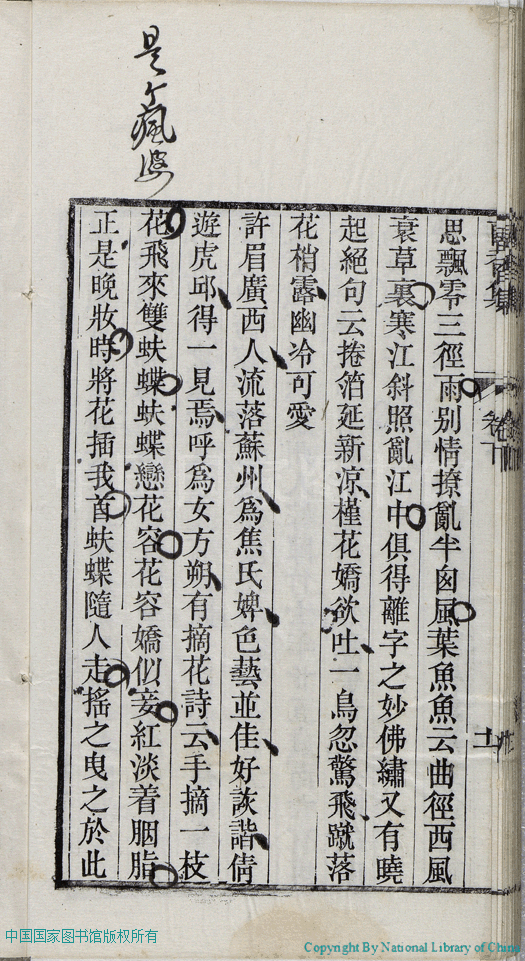 是个瘋婆
思飄零三徑雨別情撩亂半囪風葉魚魚云曲徑西風
衰草裏寒江斜照亂江中俱得離字之妙佛繡又有曉
起絕句云捲箔延新涼槿花嬌欲吐一鳥忽驚飛蹴落
花梢露幽冷可愛
許眉廣西人流落蘇州為焦氏婢色藝並佳好詼諧倩
遊虎邱得一見焉呼為女方朔有摘花詩云手摘一枝
花飛來雙蚨蝶蚨蝶戀花容花容嬌似妾紅淡着胭脂
正是晚妝時將花插我首蚨蝶隨人走搖之曳之於此
卷十
中国国家图书馆版权所有
Copyright By National Library of China